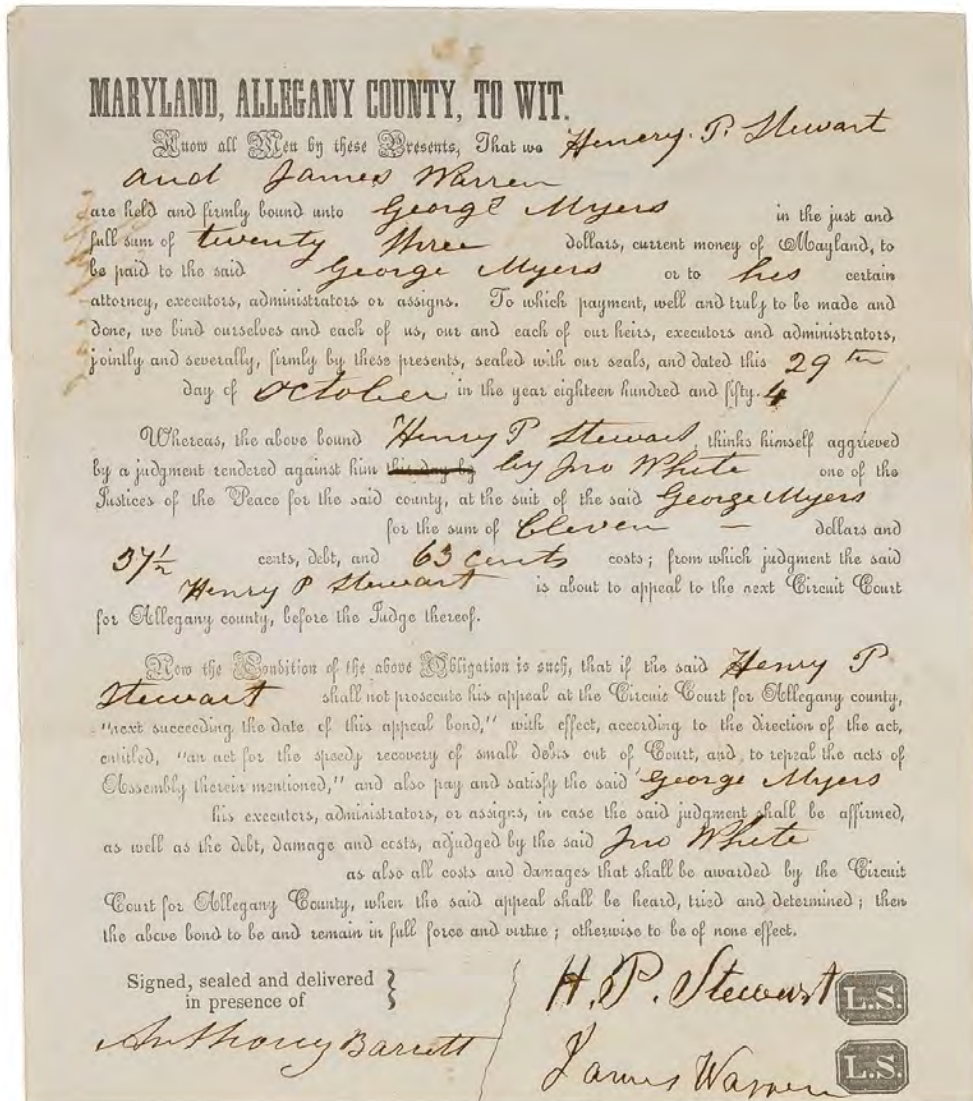 MARYLAND, ALLEGANY COUNTY, TO WIT.
Know all Men by these Presents, That we Henery. P. Stewart
and James Warren
are held and firmly bound unto George Myers in the just and
full sum of twenty three dollars, current money of Mayland, to
be paid to the said George Myers or to his certain
attorney, executors, administrators or assigns. To which payment, well and truly to be made and
done, we bind ourselves and each of us, our and each of our heirs, executors and administrators,
jointly and severally, firmly by these presents, sealed with our seals, and dated this 29th
day of October in the year eighteen hundred and fifty. 4
Whereas, the above bound Henry P Stewart, thinks himself aggrieved
by a judgment rendered against him this day by by Jno White one of the
Justices of the Peace for the said county, at the suit of the said George Myers
for the sum of Eleven — dollars and
37½ cents, debt, and 63 cents costs; from which judgment the said
Henry P Stewart is about to appeal to the next Circuit Court
for Allegany county, before the Judge thereof.
Now the Condition of the above Obligation is such, that if the said Henry P
Stewart shall not prosecute his appeal at the Circuit Court for Allegany county,
"next succeeding the date of this appeal bond," with effect, according to the direction of the act,
entitled, "an act for the speedy recovery of small debts out of Court, and to repeal the acts of
Assembly therein mentioned," and also pay and satisfy the said George Myers
his executors, administrators, or assigns, in case the said judgment shall be affirmed,
as well as the debt, damage and costs, adjudged by the said Jno White
as also all costs and damages that shall be awarded by the Circuit
Court for Allegany County, when the said appeal shall be heard, tried and determined; then
the above bond to be and remain in full force and virtue; otherwise to be of none effect.
Signed, sealed and delivered
in presence of
Anthony Barrett
H. P. Stewart L.S.
James Warren L.S.